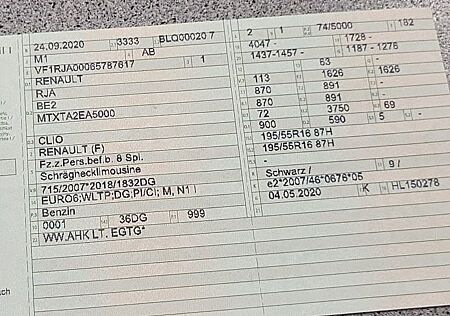 24.09.2020 3333 BLQ00020 7
M1 AB
VF1RJA00065787617 3 1
RENAULT
RJA
BE2
MTXTA2EA5000
CLIO
RENAULT (F)
Fz.z.Pers.bef.b. 8 Spl.
Schräghecklimousine
715/2007*2018/1832DG
EURO6;WLTP;DG;PI/CI; M, N1 I
Benzin
0001 36DG 999
WW.AHK LT. EGTG*
2 1 74/5000 182
4047 - 1728 -
1437-1457 - 1187 - 1276
- 63 -
113 1626 1626
870 891 -
870 891 -
72 3750 69
900 590 5 -
195/55R16 87H
195/55R16 87H
-
Schwarz / 9 /
e2*2007/46*0676*05
04.05.2020 K HL150278